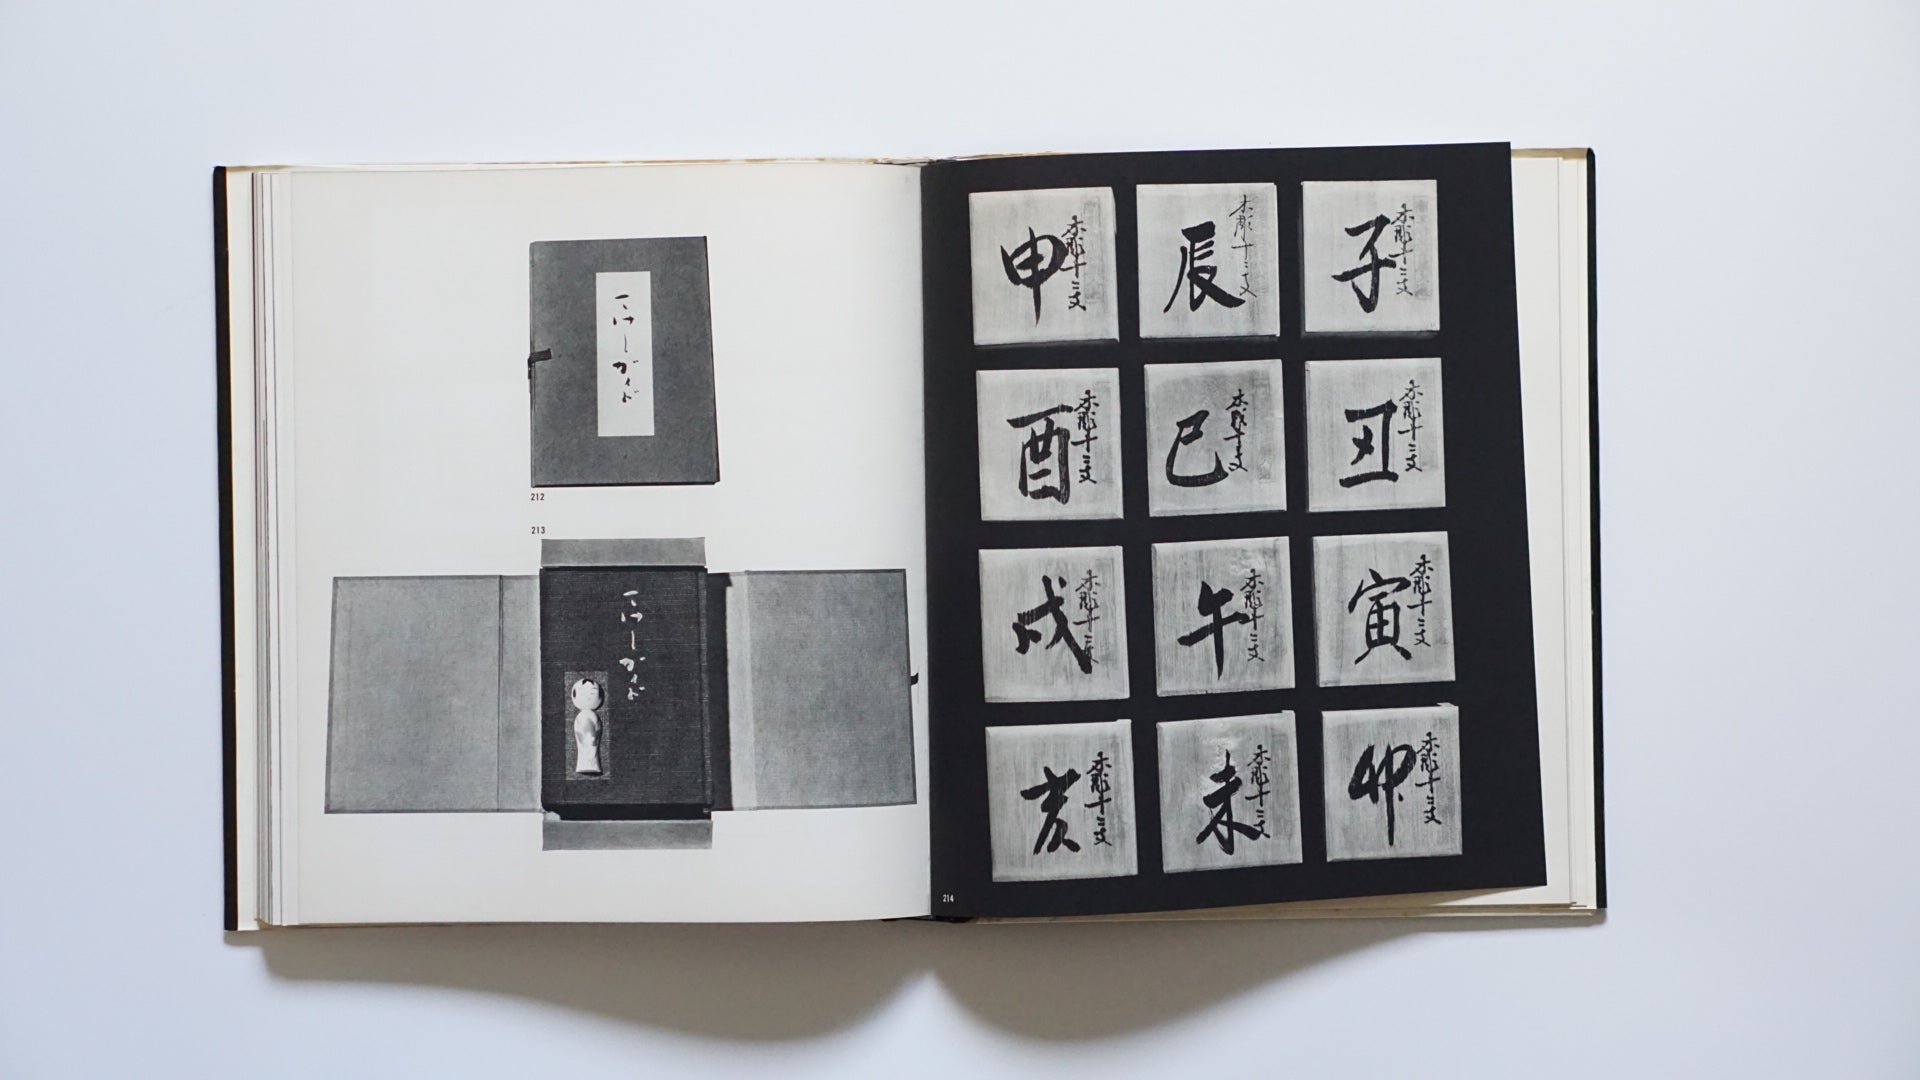 こけしガイド
212
213
こけしガイド
木彫十二支
子
木彫十二支
丑
木彫十二支
寅
木彫十二支
卯
木彫十二支
辰
木彫十二支
巳
木彫十二支
午
木彫十二支
未
木彫十二支
申
木彫十二支
酉
木彫十二支
戌
木彫十二支
亥
214